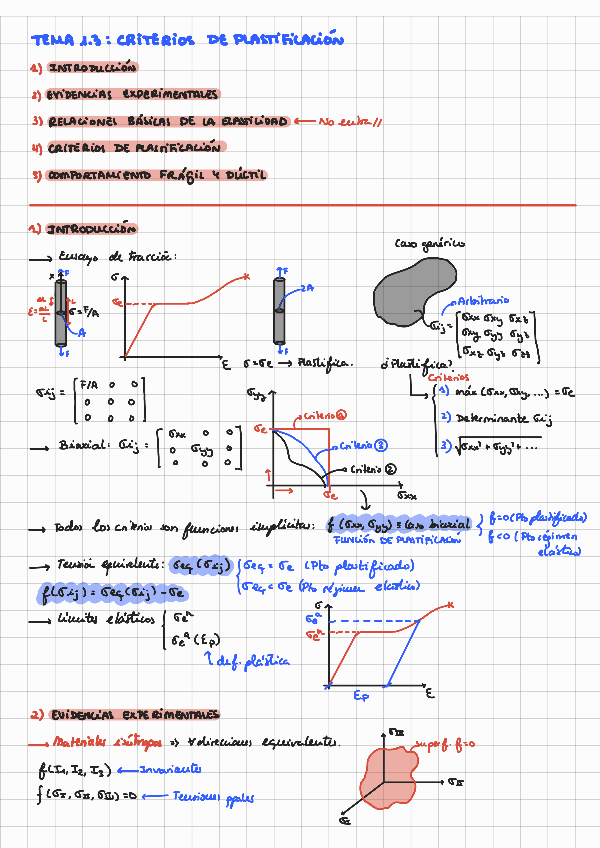 TEMA 1.3: CRITERIOS DE PLASTIFICACIÓN
1) INTRODUCCIÓN
2) EVIDENCIAS EXPERIMENTALES
3) RELACIONES BÁSICAS DE LA ELASTICIDAD ← No entra //
4) CRITERIOS DE PLASTIFICACIÓN
5) COMPORTAMIENTO FRÁGIL Y DÚCTIL
1) INTRODUCCIÓN
→ Ensayo de tracción:
Caso genérico
x F
σ
σe
ε
ΔL
L
ε = ΔL/L
σ = F/A
A
F
F
ΩA
F
σ = σe → Plastifica.
Arbitrario
σij = [σxx σxy σxz
σxy σyy σyz
σxz σyz σzz]
¿Plastifica?
Criterios
1) máx (σxx, σxy, ...) = σe
2) Determinante σij
3) √σxx² + σyy² + ...
σij = [F/A 0 0
0 0 0
0 0 0]
→ Biaxial: σij = [σxx 0 0
0 σyy 0
0 0 0]
σyy
σe
Criterio ①
Criterio ③
Criterio ②
σe
σxx
→ Todos los criterios son funciones implícitas: f(σxx, σyy) = caso biaxial
FUNCIÓN DE PLASTIFICACIÓN
f=0 (Pto plastificado)
f<0 (Pto régimen elástico)
→ Tensión equivalente: σeq (σij)
σeq = σe (Pto plastificado)
σeq < σe (Pto régimen elástico)
f(σij) = σeq(σij) - σe
→ Límites elásticos
σe⁰
σeᵃ (Ep)
def. plástica
σ
σeᵃ
σe⁰
Ep
ε
2) EVIDENCIAS EXPERIMENTALES
→ Materiales isótropos => ∀ direcciones equivalentes.
f(I1, I2, I3) ← Invariantes
f(σI, σII, σIII) = 0 ← Tensiones ppales
σIII
superf. f=0
σII
σI